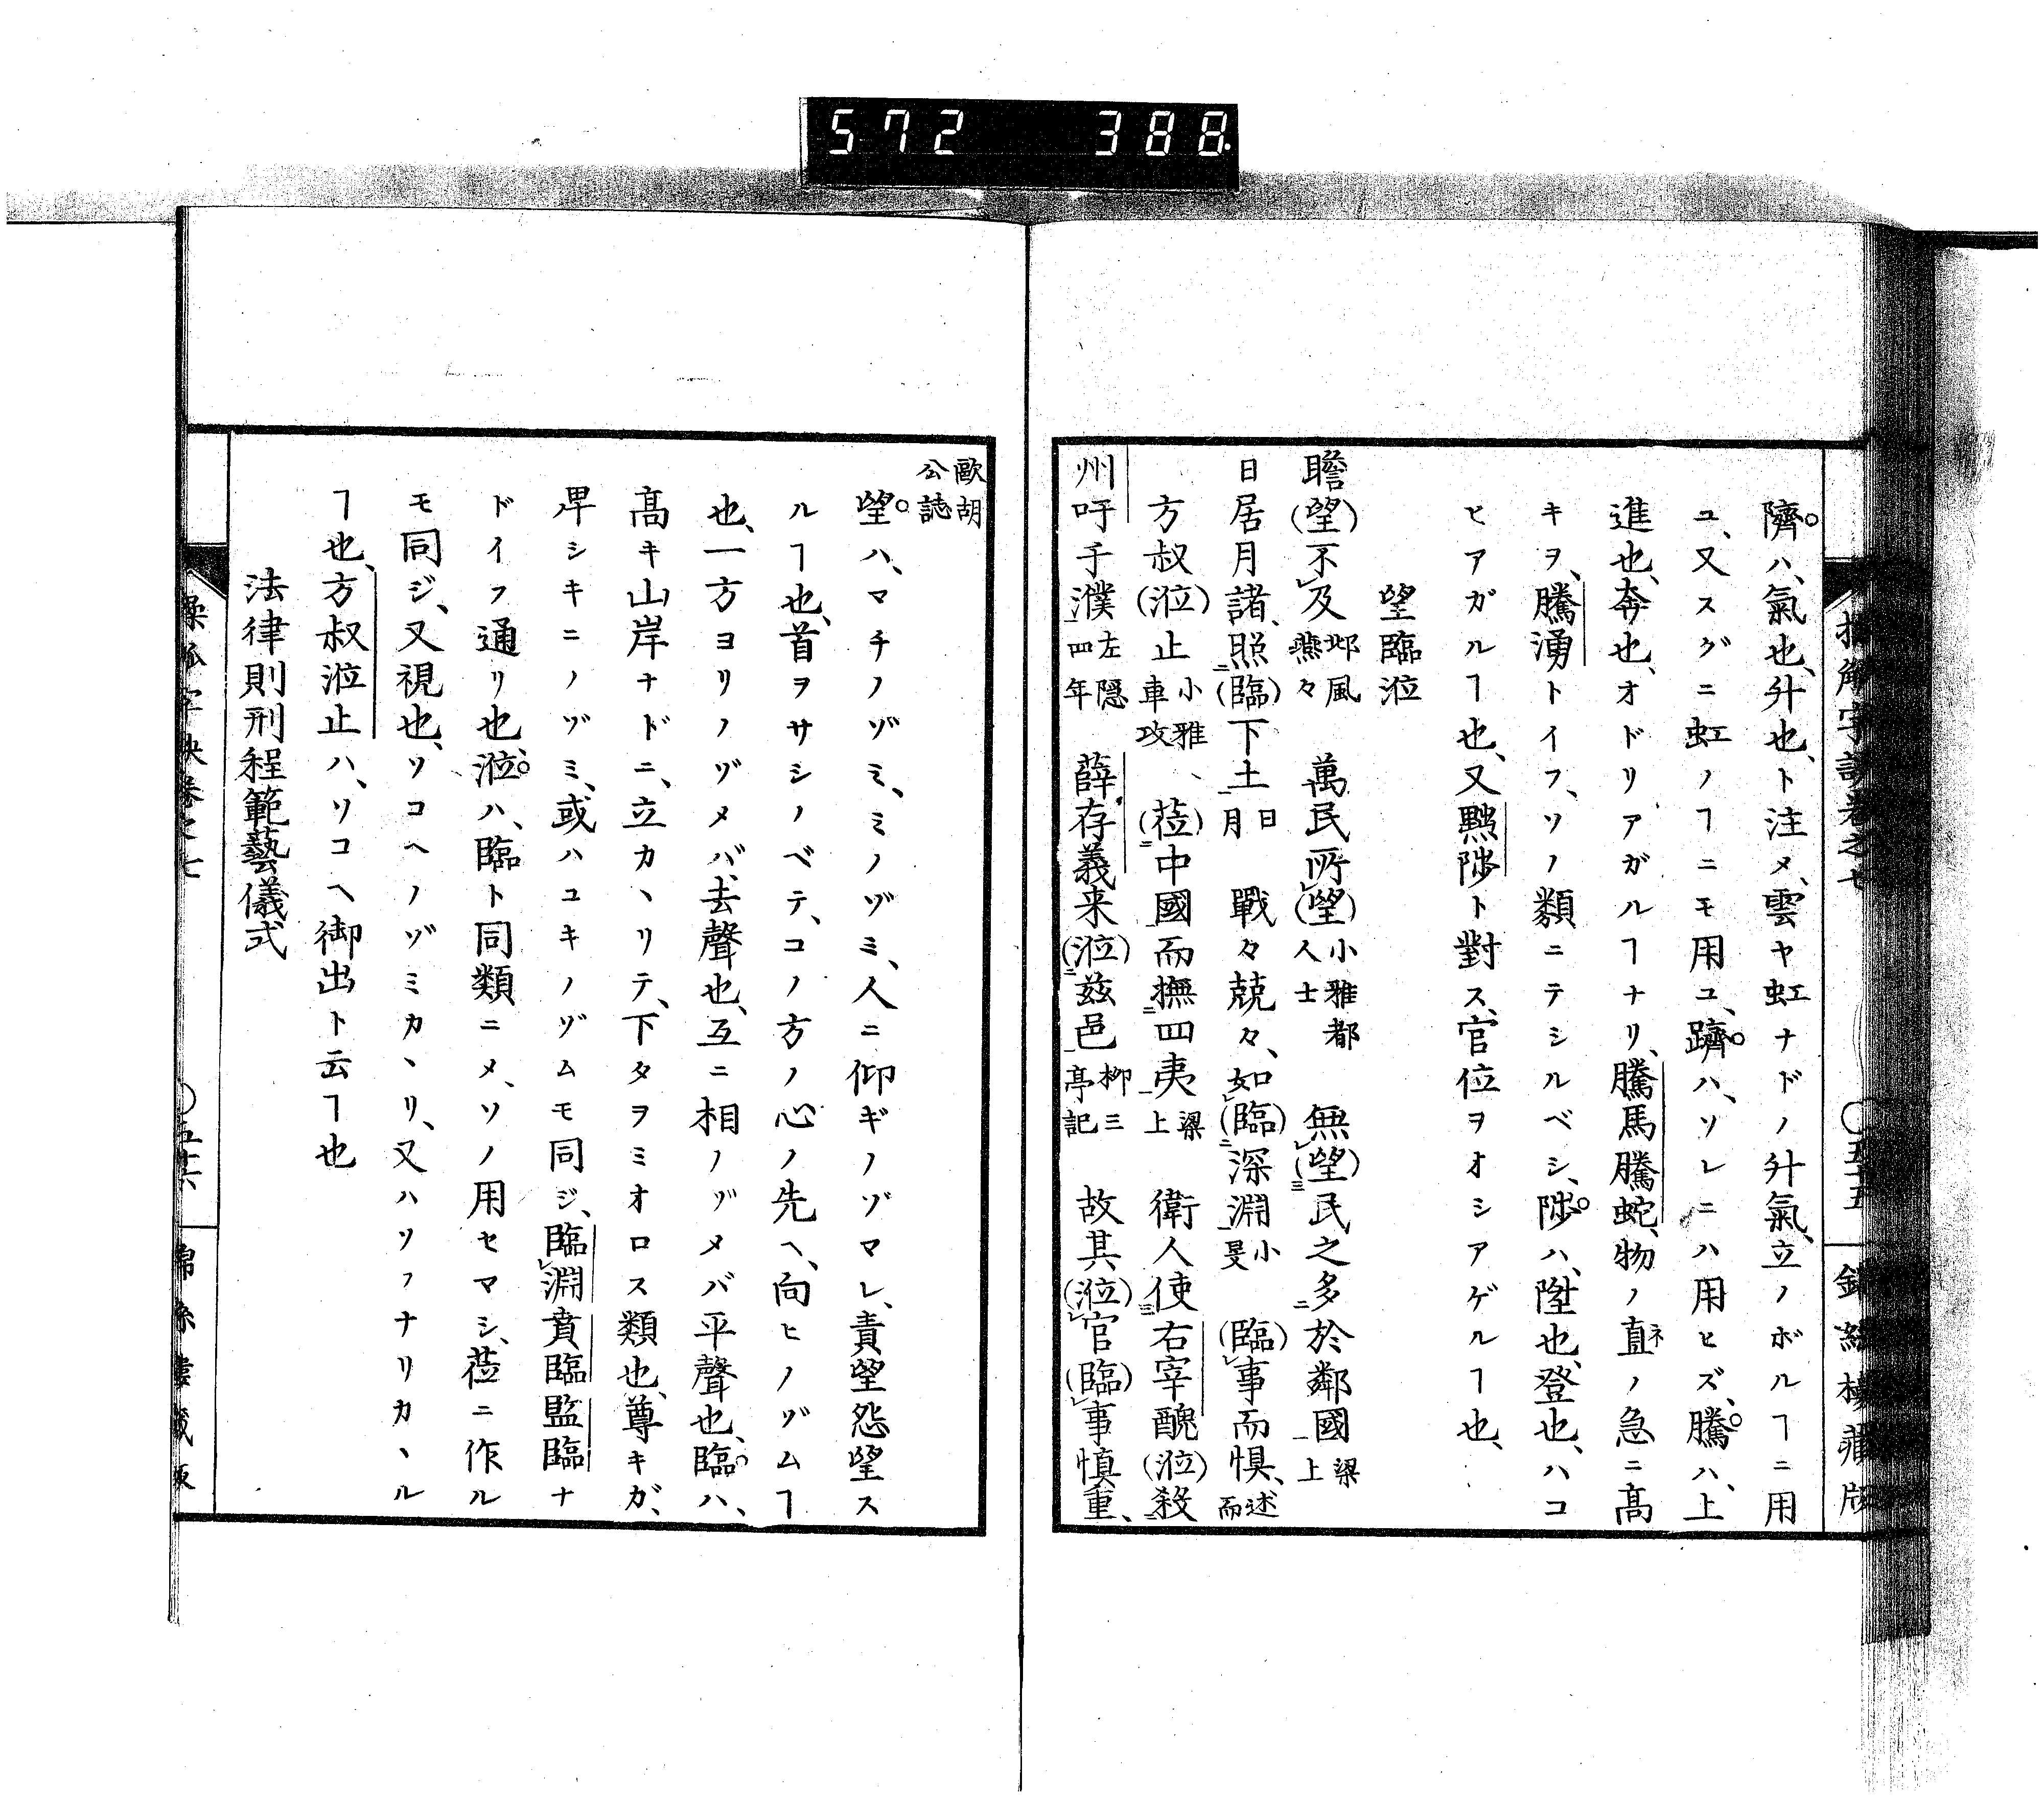 572 388
隮ハ、氣也、升也、ト注メ、雲ヤ虹ナドノ升氣、立ノボルヿニ用
ユ、又スグニ虹ノヿニモ用ユ、躋ハ、ソレニハ用ヒズ、騰ハ、上
進也、奔也、オドリアガルヿナリ、騰馬騰蛇、物ノ直ネノ急ニ高
キヲ、騰湧トイフ、ソノ類ニテシルベシ、陟ハ、陞也、登也、ハコ
ヒアガルヿ也、又黜陟ト對ス、官位ヲオシアゲルヿ也、
望臨涖
瞻(望)不レ及邶風燕々 萬民所レ(望)小雅都人士 無レ(望)三民之多二於鄰國一梁上
日居月諸、照二(臨)下土一日月 戰々兢々、如レ(臨)二深淵一小旻 (臨)レ事而惧、述而
方叔(涖)止小雅車攻 (莅)二中國一而撫二四夷一梁上 衛人使三右宰醜(涖)殺二
州吁于濮一左隠四年 薛存義来(涖)二玆邑一柳三亭記 故其(涖)レ官(臨)レ事慎重、
歐胡公誌
望ハ、マチノゾミ、ミノゾミ、人ニ仰ギノゾマレ、責望怨望ス
ルヿ也、首ヲサシノベテ、コノ方ノ心ノ先ヘ、向ヒノゾムヿ
也、一方ヨリノゾメバ、去聲也、互ニ相ノゾメバ平聲也、臨ハ、
高キ山岸ナドニ、立カヽリテ、下タヲミオロス類也、尊キガ、
卑シキニノゾミ、或ハユキノゾムモ同ジ、臨レ淵賁臨監臨ナ
ドイフ通リ也、涖ハ、臨ト同類ニメ、ソノ用セマシ、莅ニ作ル
モ同ジ、又視也、ソコヘノゾミカヽリ、又ハソフナリカヽル
ヿ也、方叔涖止ハ、ソコヘ御出ト云ヿ也
法律則刑程範藝儀式